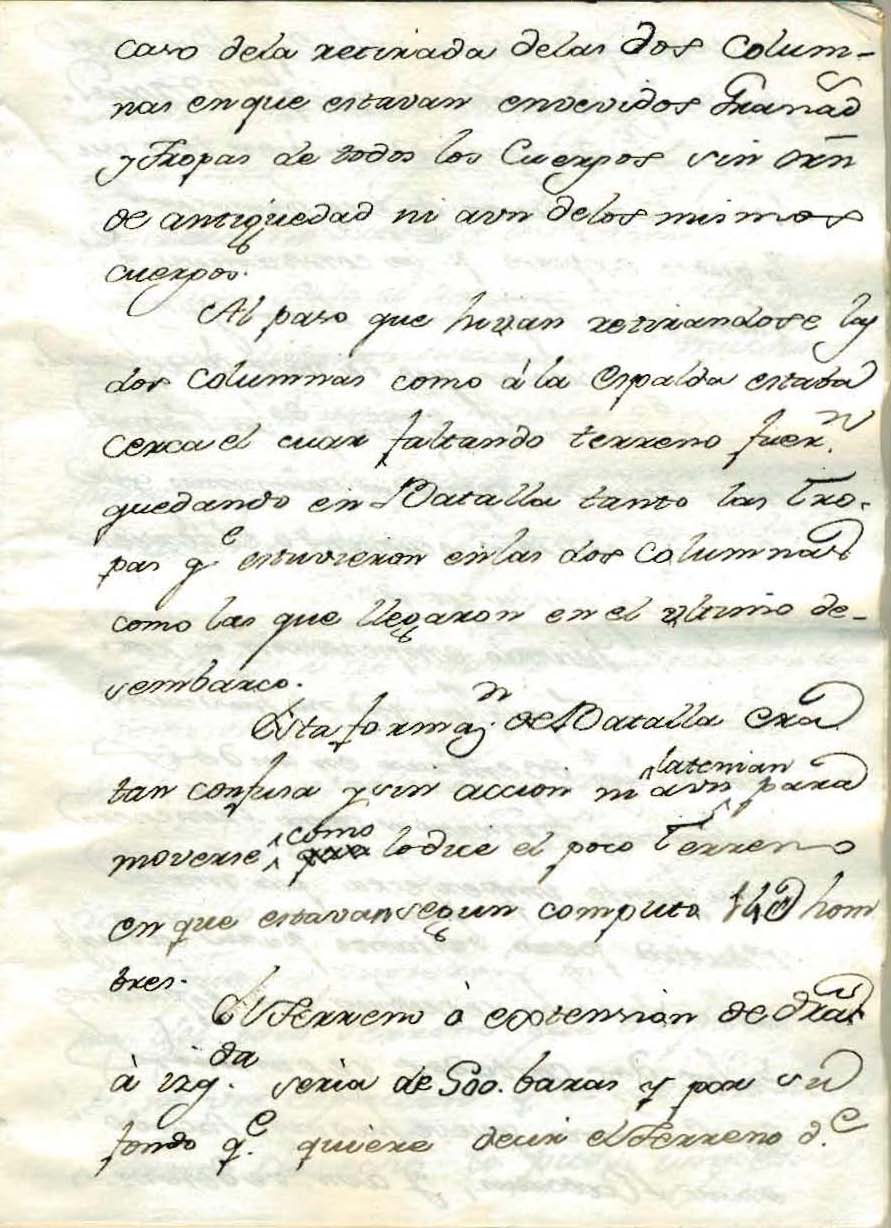 caso dela retirada delas dos Colum-
nas enque estavan envevidos Granad.s
y Tropas de todos los Cuerpos sin orn
de antiguedad ni avn delos mismos
cuerpos.
Al paso que hivan retirandose las
dos Columnas como à la espalda estaba
cerca el mar faltando terreno fuer.n
quedando en Batalla tanto las Tro-
pas q.e estuvieron enlas dos Columnas
como las que llegaron en el vltimo de-
sembarco.
Esta formaz.n de Batalla era
tan confusa y sin accion ni latenian avn para
moverse como lodice el poco Terreno
en que estavan segun computo hom
bres.
El Terreno ò extension de dra
à izq.da seria de 500. baras y por su
fondo q.e quiere decir el Terreno d.e